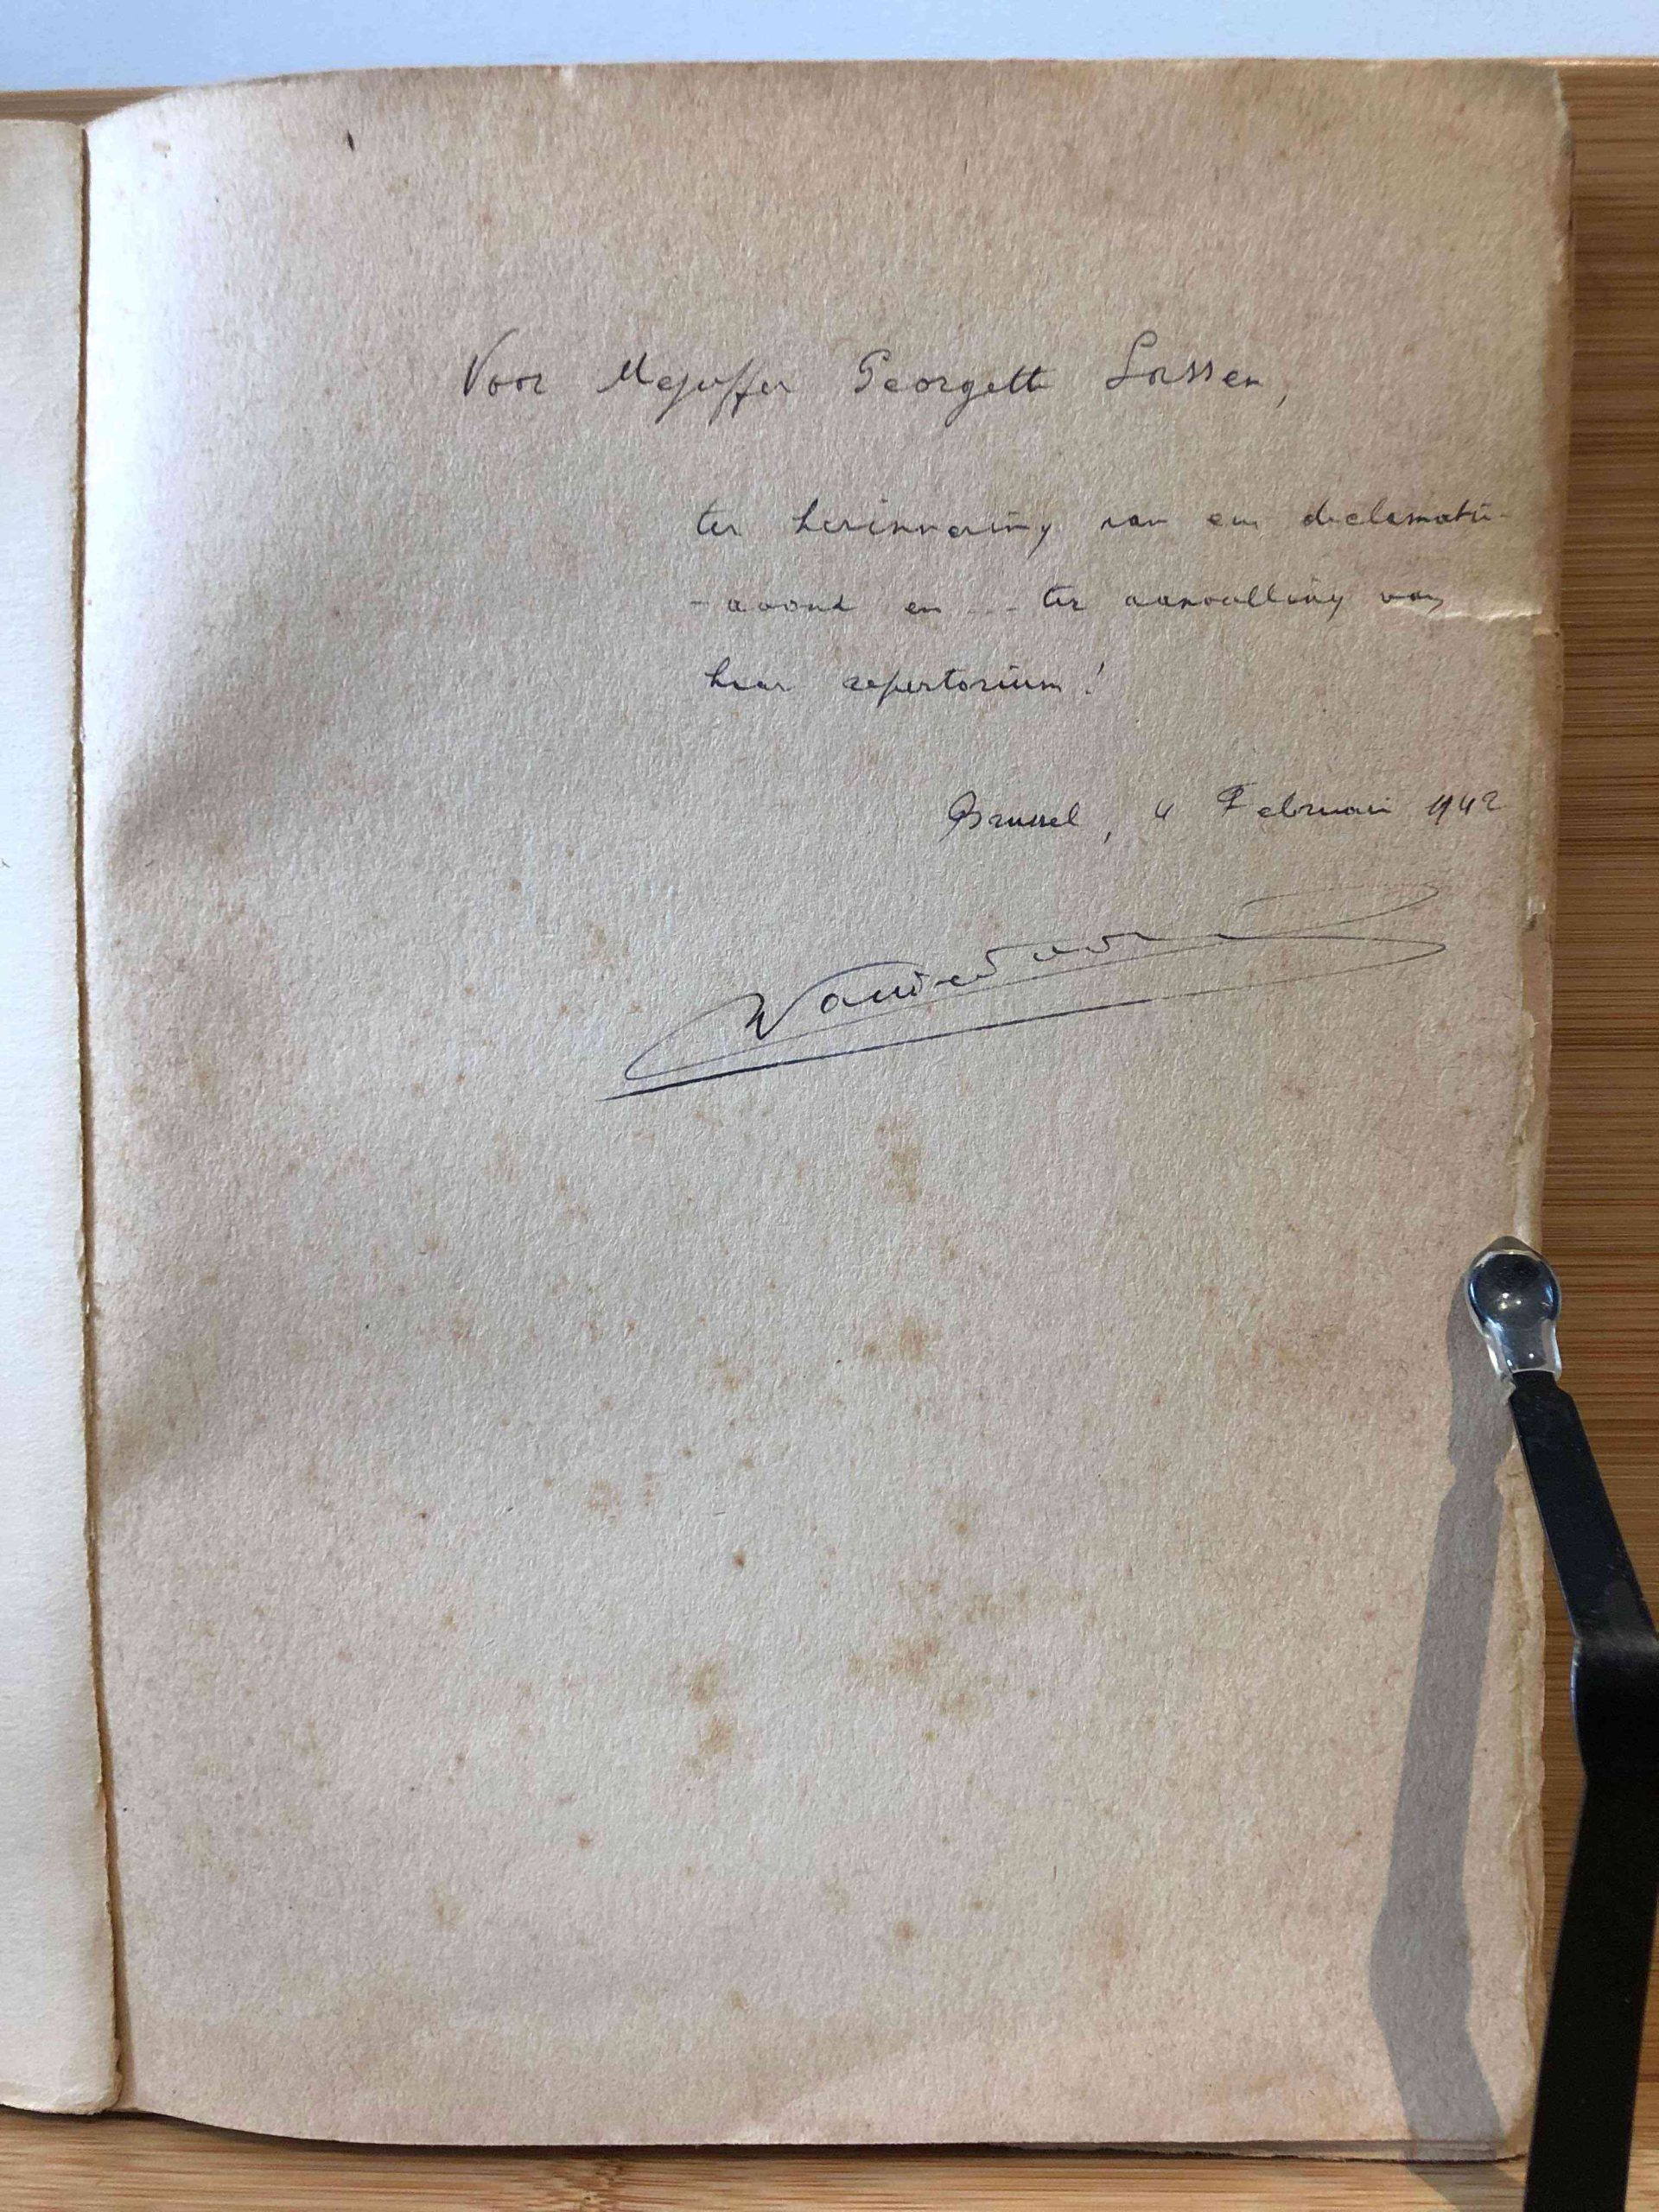 Voor Mejuffer Georgette Lassen,
ter herinnering van een declamatie-
-avond en ... ter aanvulling van
haar repertorium!
Brussel, 4 Februari 1942